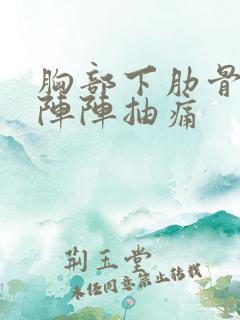 胸部下肋骨
陣陣抽痛
荆王堂
未经同意禁止转载